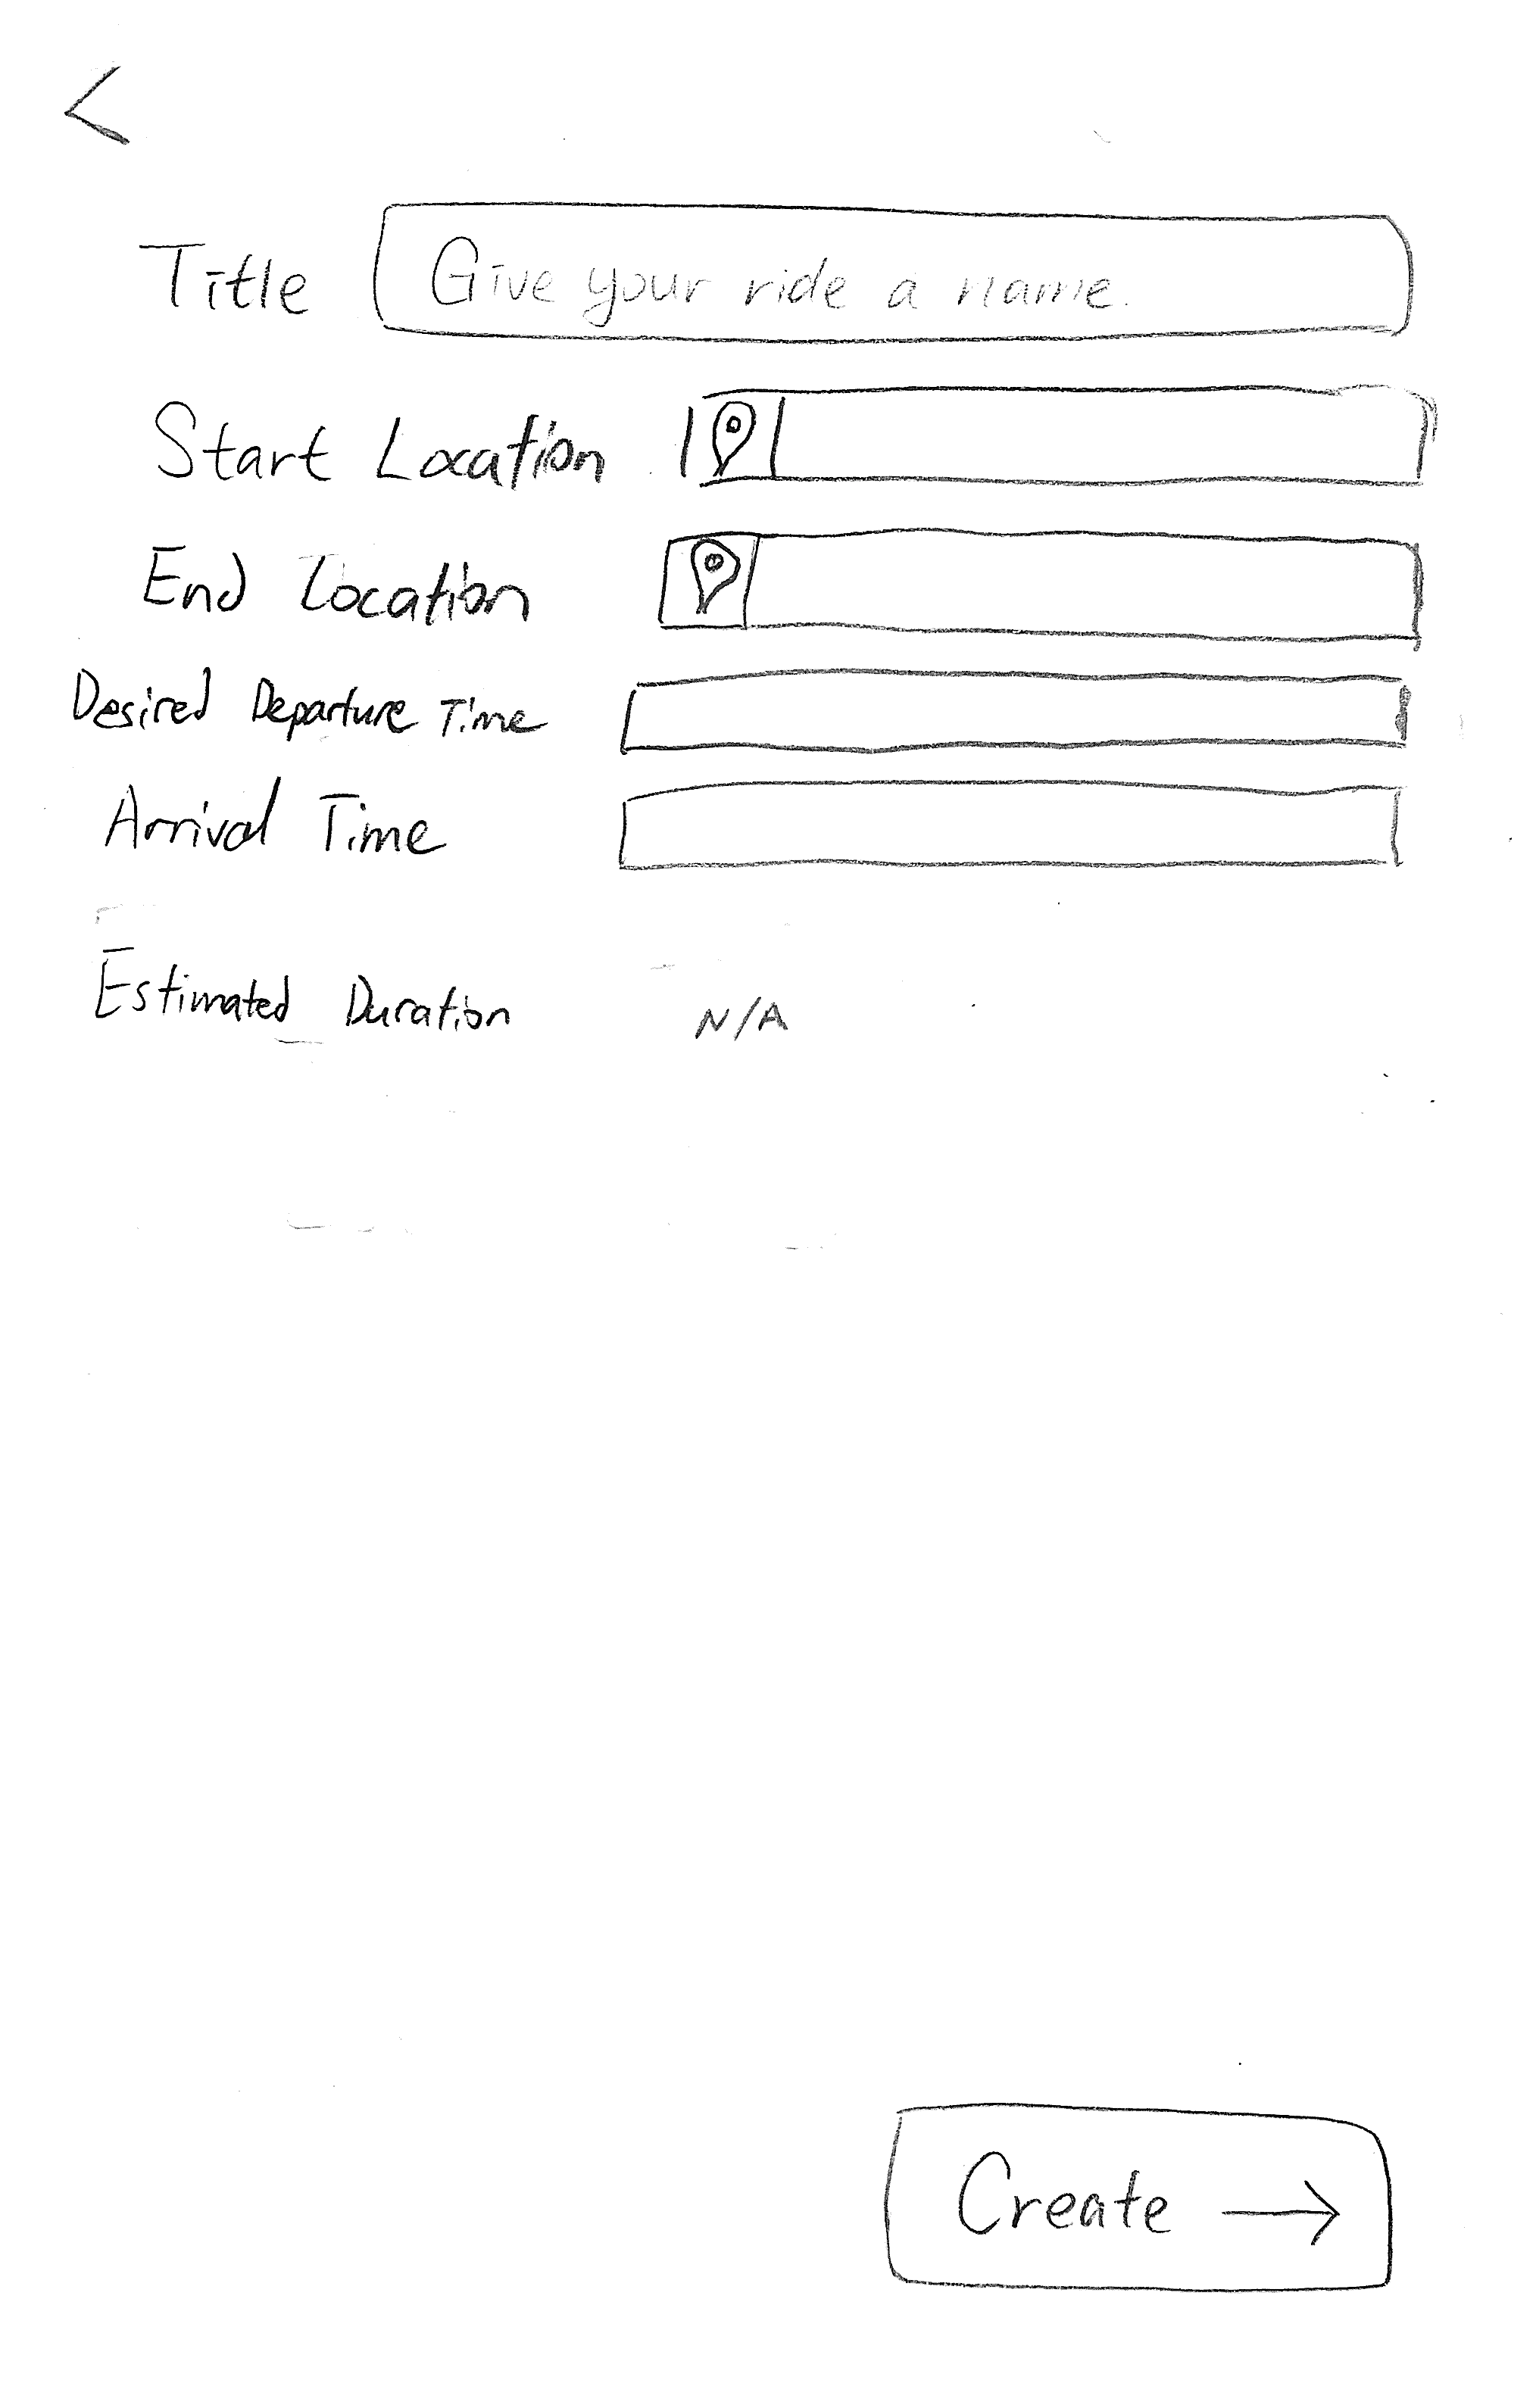 Title Give your ride a name.
Start Location
End Location
Desired Departure Time
Arrival Time
Estimated Duration N/A
Create →